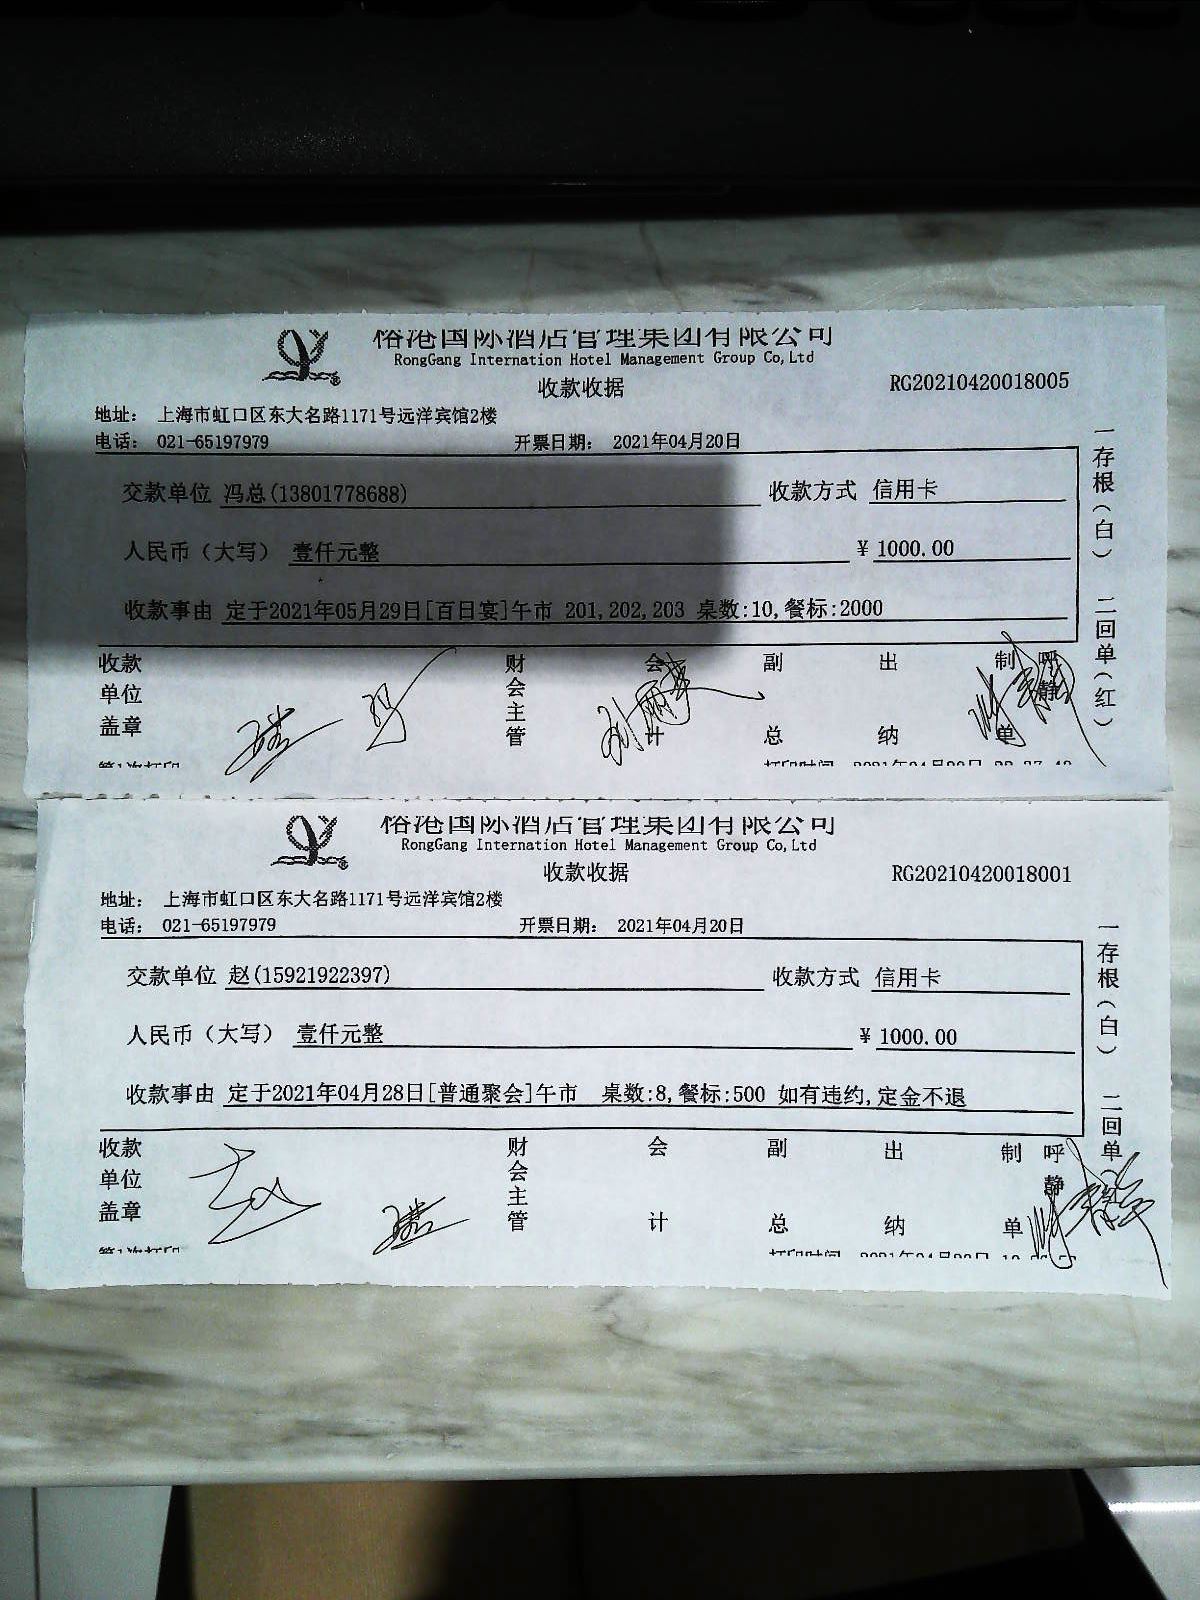 榕港国际酒店管理集团有限公司
RongGang Internation Hotel Management Group Co,Ltd
收款收据
RG20210420018005
地址： 上海市虹口区东大名路1171号远洋宾馆2楼
电话： 021-65197979 开票日期： 2021年04月20日
交款单位 冯总(13801778688) 收款方式 信用卡
人民币（大写） 壹仟元整 ¥ 1000.00
收款事由 定于2021年05月29日[百日宴]午市 201,202,203 桌数:10,餐标:2000
一存根（白） 二回单（红）
收款单位盖章 财会主管 会计 副总 出纳 制单 呼静
第1次打印 打印时间
榕港国际酒店管理集团有限公司
RongGang Internation Hotel Management Group Co,Ltd
收款收据
RG20210420018001
地址： 上海市虹口区东大名路1171号远洋宾馆2楼
电话： 021-65197979 开票日期： 2021年04月20日
交款单位 赵(15921922397) 收款方式 信用卡
人民币（大写） 壹仟元整 ¥ 1000.00
收款事由 定于2021年04月28日[普通聚会]午市 桌数:8,餐标:500 如有违约,定金不退
一存根（白） 二回单
收款单位盖章 财会主管 会计 副总 出纳 制单 呼静
赵
第1次打印 打印时间